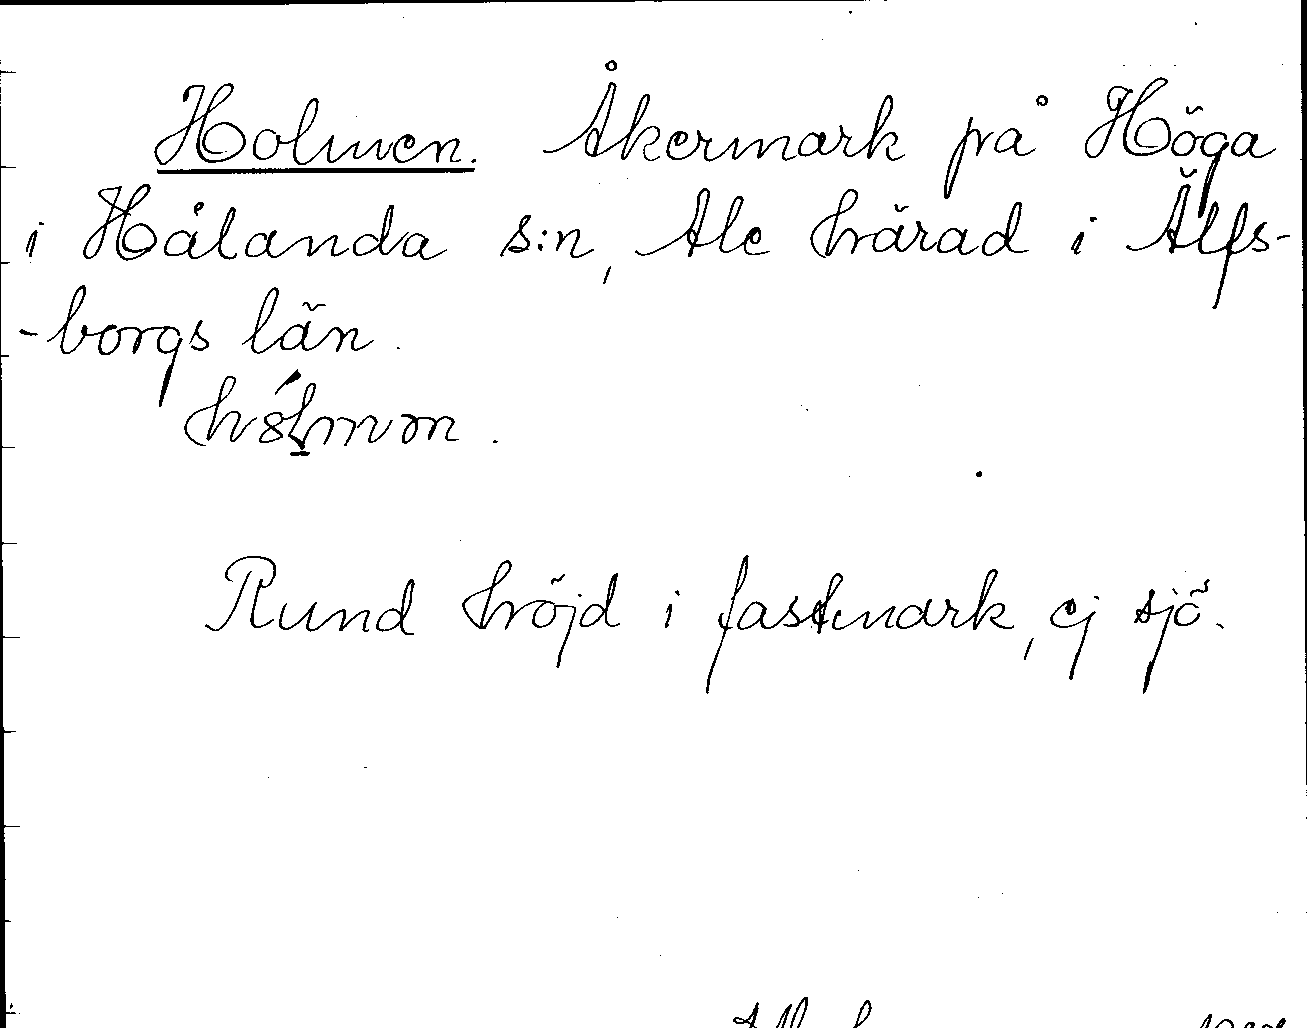 Holmen. Åkermark på Höga
i Hålanda s:n, Ale härad i Älfs-
-borgs län.
Rund höjd i fastmark, ej sjö.